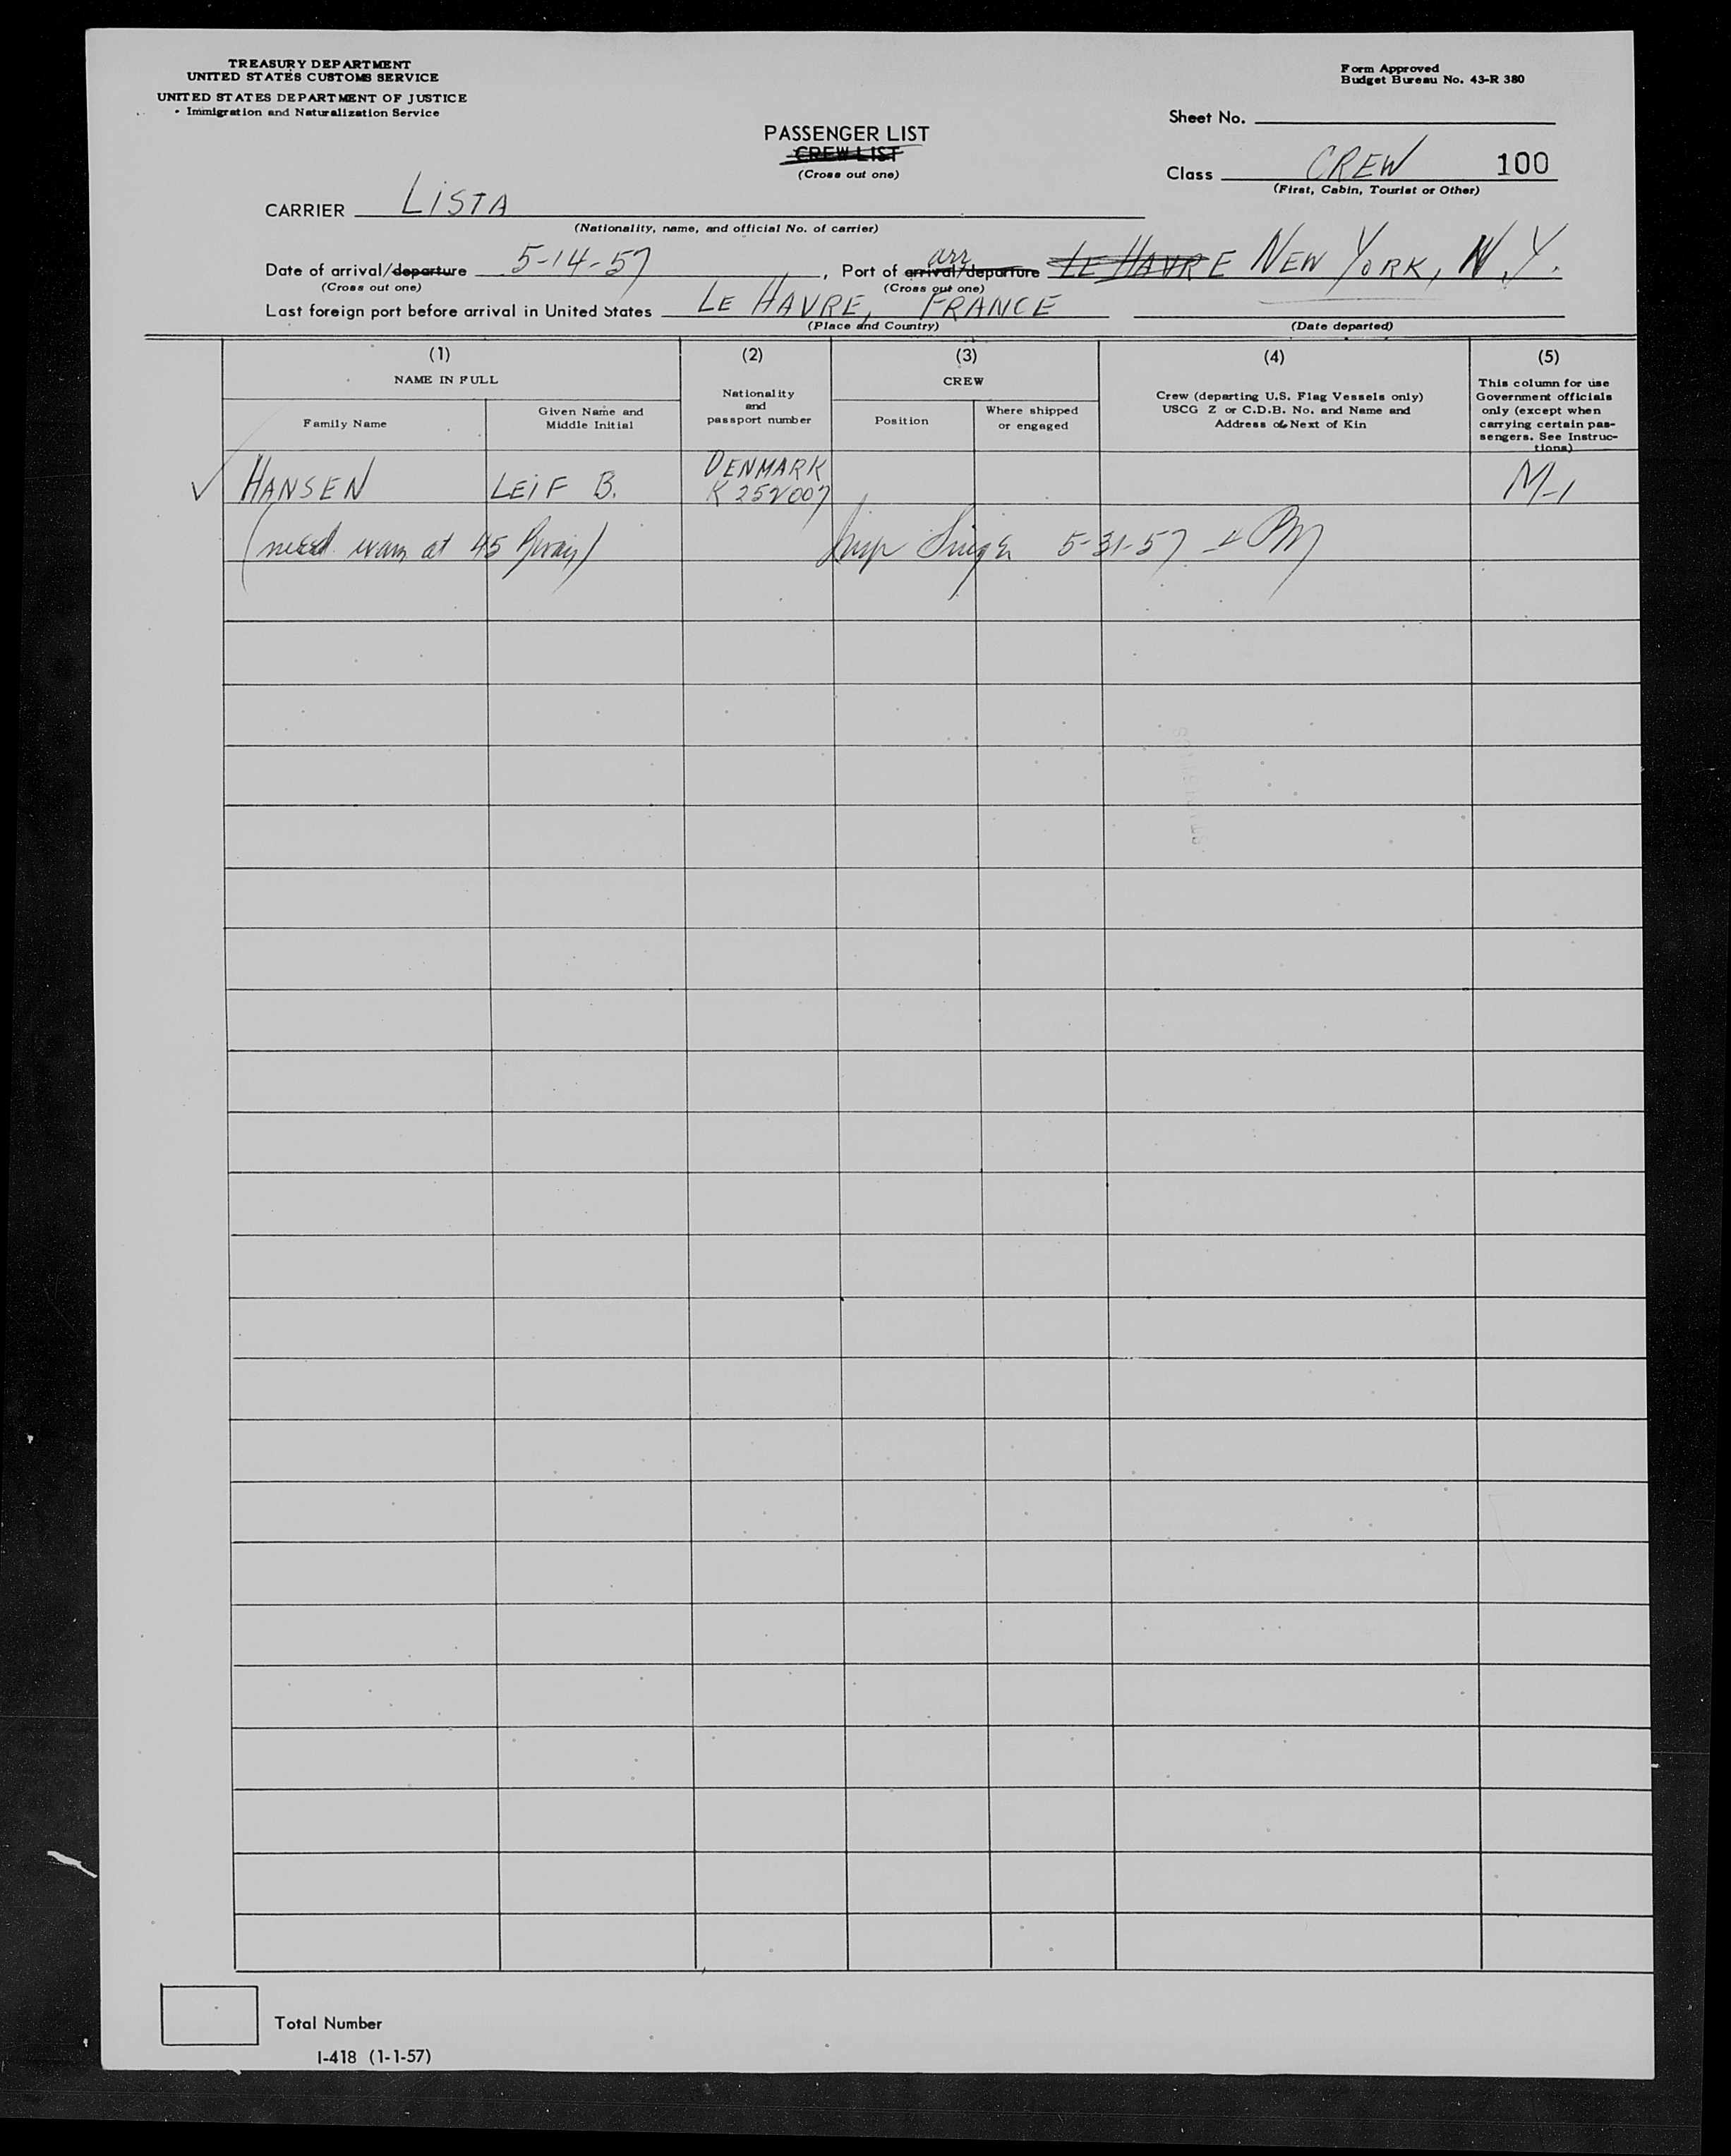 TREASURY DEPARTMENT
UNITED STATES CUSTOMS SERVICE
UNITED STATES DEPARTMENT OF JUSTICE
Immigration and Naturalization Service
Form Approved
Budget Bureau No. 43-R 380
Sheet No.
PASSENGER LIST
CREW LIST
(Cross out one)
Class CREW 100
(First, Cabin, Tourist or Other)
CARRIER LISTA
(Nationality, name, and official No. of carrier)
arr
Date of arrival/departure 5-14-57, Port of arrival/departure LE HAVRE NEW YORK, N.Y.
(Cross out one) (Cross out one)
Last foreign port before arrival in United States LE HAVRE, FRANCE
(Place and Country) (Date departed)
(1) (2) (3) (4) (5)
NAME IN FULL
Family Name
Given Name and
Middle Initial
Nationality
and
passport number
CREW
Position
Where shipped
or engaged
Crew (departing U.S. Flag Vessels only)
USCG Z or C.D.B. No. and Name and
Address of Next of Kin
This column for use
Government officials
only (except when
carrying certain pas-
sengers. See Instruc-
tions)
HANSEN LEIF B. DENMARK
K 252007 M-1
at 45 5-31-57
Total Number
I-418 (1-1-57)